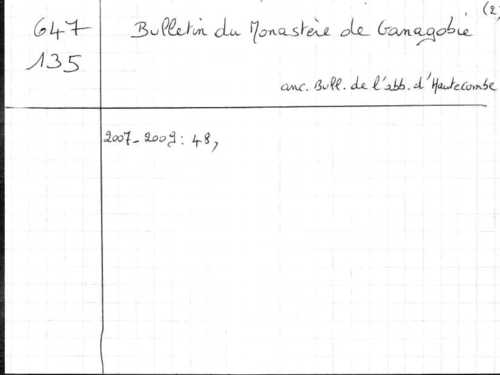 (2)
647 Bulletin du Monastère de Ganagobie
135
anc. Bull. de l'abb. d'Hautecombe
2007-2009: 48,